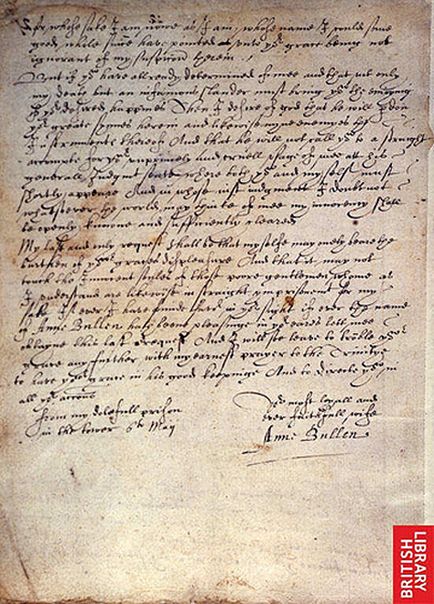 For, whose sake I am nowe as I am, whose name I could some
good while since have pointed unto yor grace being not
ignorant of my suspicion therein
But if yow have all ready determined of mee and that not only
my death but an infamous slander must bring yow the enjoying
of yor desired happines Then I desire of god that he will pardon
yor great synnes herein and likewise myne enemyes the
Instruments thereof And that he will not call yow to a straight
accompte for yor unprincely and cruell usage of mee at his
generall Judgmt seate where both yow and my self must
shortly appeare And in whose just judgment I doubt not
whatsoever the world may thinke of mee my innocency shall
be openly knowne and sufficiently cleared
My last and only request shall be that my selfe may onely beare the
burthen of yor graces displeasure And that it may not
touch the Innocent soules of those poore gentlemen whome as
I understand are likewise in straight imprisonment for my
sake If ever I have found in yor sight if ever the name
of Anne Bullen have been pleasinge in yor eares lett mee
obtayne this last request And I will so leave to trouble yor
grace any further with my earnest prayer to the Trinitye
to have yor grace in his good keepinge And to directe yow in
all yor actions
From my dolefull prison
in the tower 6th May
Yor most loyall and
ever faithfull wife
Anne Bullen
BRITISH
LIBRARY